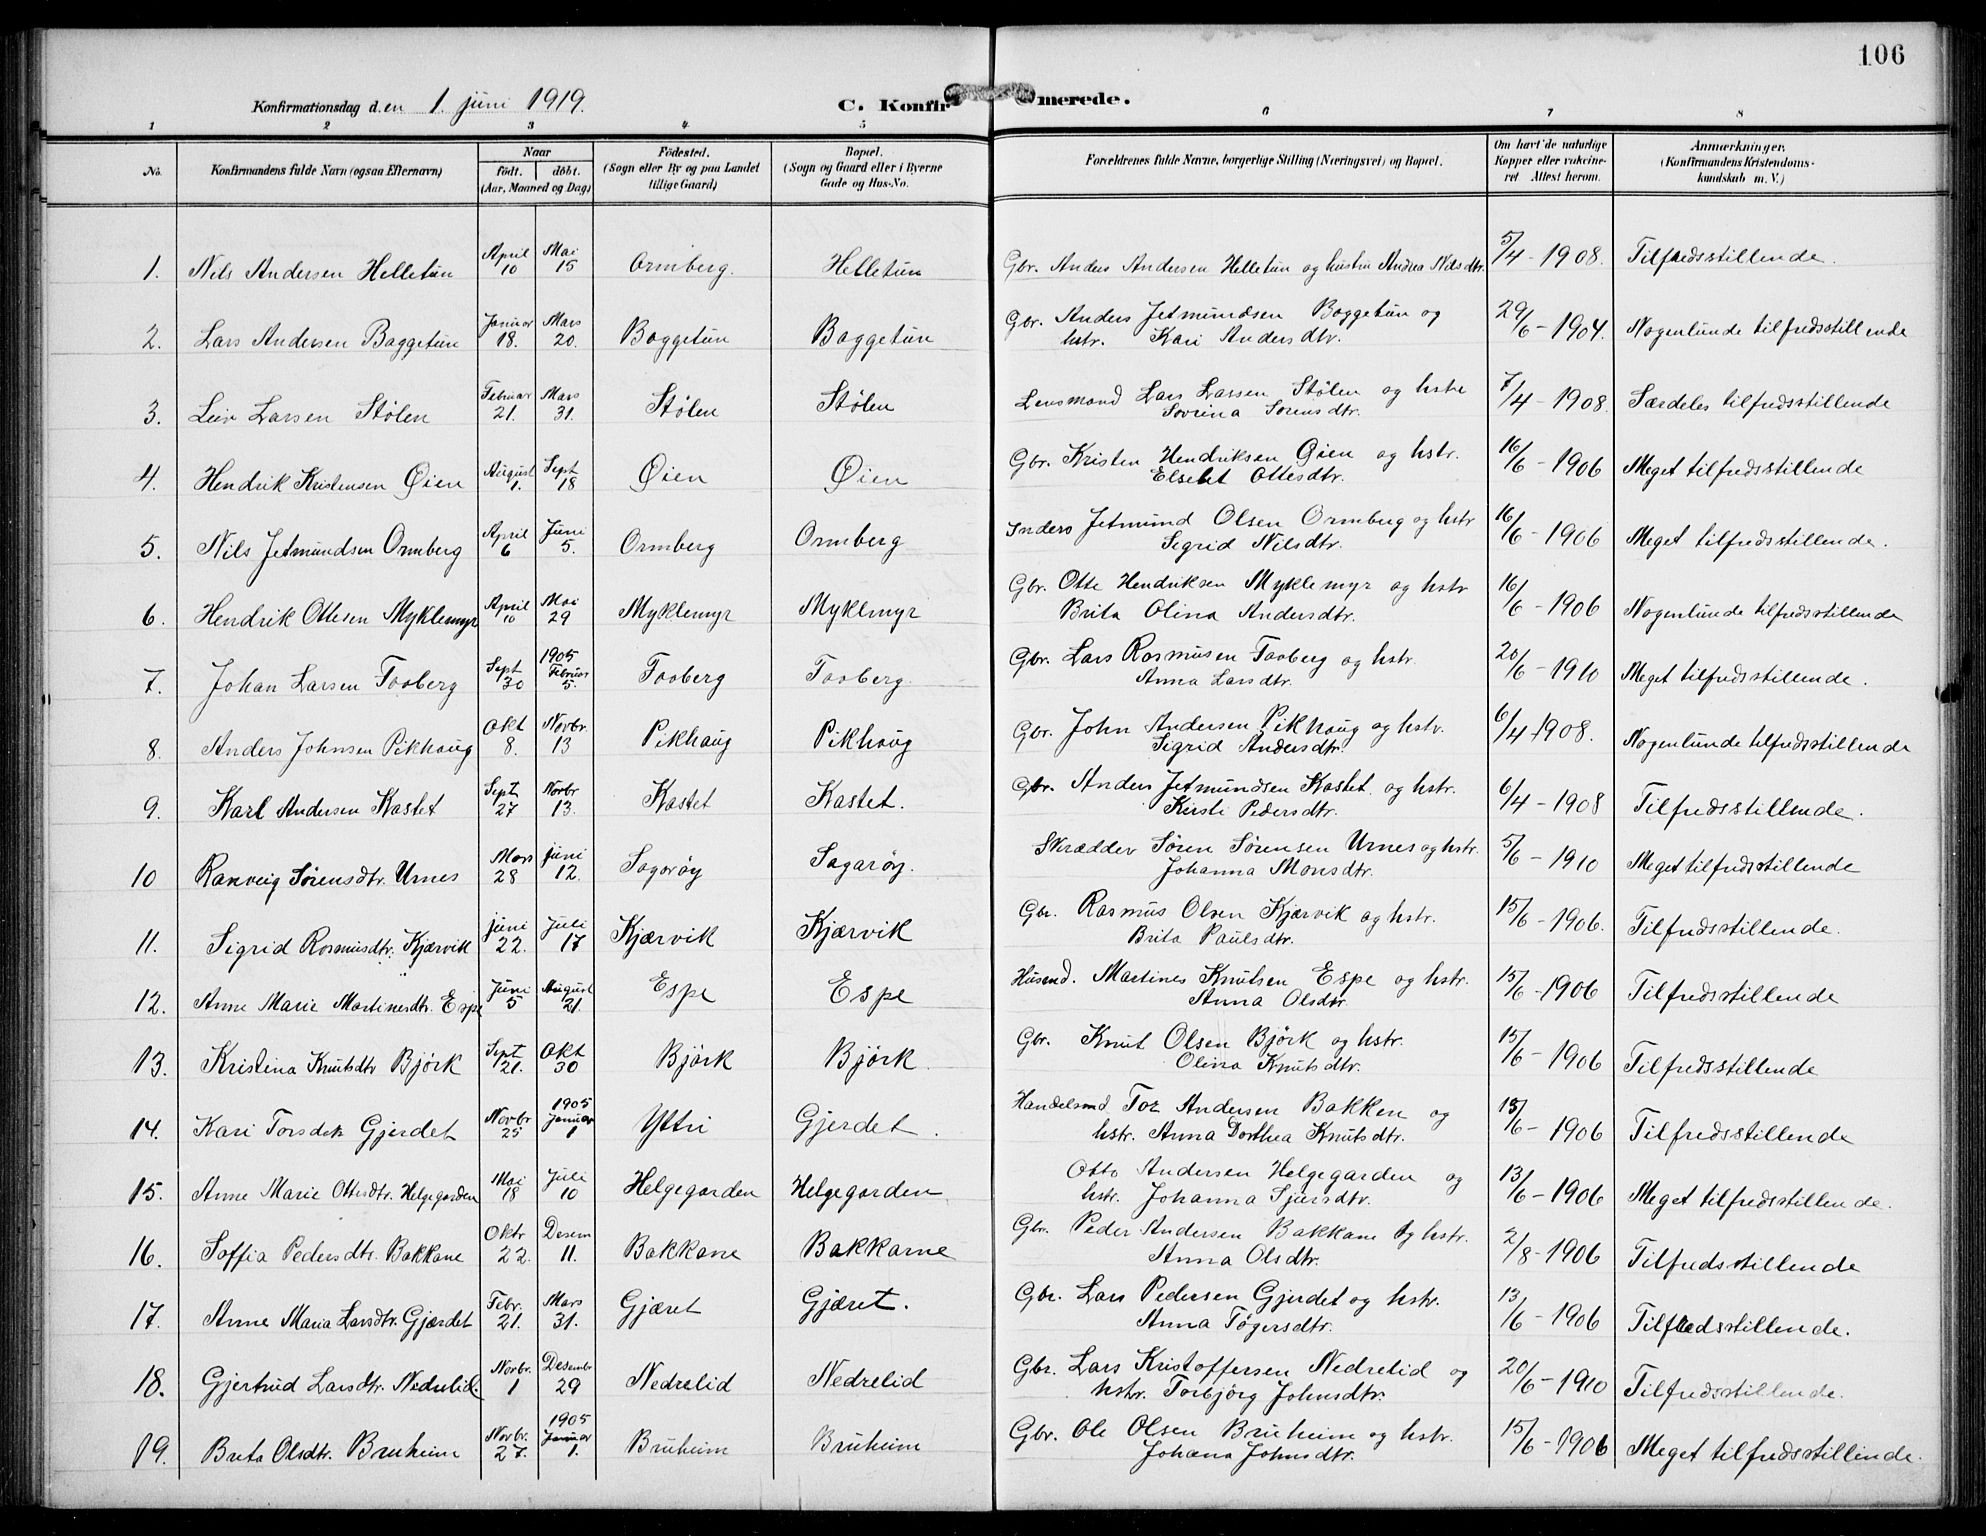 106
Konfirmationsdag den 1. juni 1919.
C. Konfirmerede.
1 2 3 4 5 6 7 8
No. Konfirmandens fulde Navn (ogsaa Efternavn) Naar født. døbt. (Aar, Maaned og Dag) Fødested. (Sogn eller By og paa Landet tillige Gaard) Bopæl. (Sogn og Gaard eller i Byerne Gade og Hus-No. Forældrenes fulde Navne, borgerlige Stilling (Næringsvei) og Bopæl. Om havt de naturlige Kopper eller vakcineret Attest herom. Anmærkninger. (Konfirmandens Kristendomskundskab m. V.)
1. Nils Andersen Helletun April 10 Mai 15 Ormberg. Helletun Gbr. Anders Andersen Helletun og hustru Andrea Nilsdtr. 5/4 - 1908. Tilfredsstillende.
2. Lars Andersen Baggetun Januar 18. Mars 20. Baggetun Baggetun Gbr. Anders Jetmundsen Baggetun og hstr. Kari Andersdtr. 29/6 - 1904. Nogenlunde tilfredsstillende
3. Leiv Larsen Stølen Februar 21. Mars 31. Stølen Stølen Lensmand Lars Larsen Stølen og hstr Sovrina Sørensdtr. 7/4 - 1908. Særdeles tilfredsstillende
4. Hendrik Kristensen Øien August 1. Sept 18 Øien Øien Gbr. Kristen Hendriksen Øien og hstr. Elsebet Ottesdtr. 16/6 - 1906 Meget tilfredsstillende
5. Nils Jetmundsen Ormberg April 6 Juni 5. Ormberg Ormberg Inders Jetmund Olsen Ormberg og hstr Sigrid Nilsdtr. 16/6 - 1906 Meget tilfredsstillende.
6. Hendrik Ottesen Myklemyr April 10 Mai 29 Myklemyr Myklmyr Gbr. Otte Hendriksen Myklemyr og hstr Brita Olina Andersdtr. 16/6 - 1906 Nogenlunde tilfredsstillende
7. Johan Larsen Faaberg Sept 30 1905 Februar 5. Faaberg Faaberg. Gbr. Lars Rasmusen Faaberg og hstr. Anna Larsdtr. 20/6 - 1910 Meget tilfredsstillende.
8. Anders Johnsen Pikhaug Okt 8. Novbr. 13 Pikhaug Pikhaug Gbr. John Andersen Pikhaug og hstr. Sigrid Andersdtr. 6/4 1908. Nogenlunde tilfredsstillende
9. Karl Andersen Kastet Sept 27 Novbr 13. Kastet Kastet. Gbr. Anders Jetmundsen Kastet og hstr. Kirsti Pedersdtr. 6/4 - 1908 Tilfredsstillende.
10 Ranveig Sørensdtr. Urnes Mars 28 Juni 12. Sagarøy Sagarøy. Skrædder Søren Sørensen Urnes og hstr. Johanna Monsdtr. 5/6 - 1910 Meget tilfredsstillende
11. Sigrid Rasmusdtr. Kjærvik Juni 22. Juli 17 Kjærvik Kjærvik Gbr. Rasmus Olsen Kjærvik og hstr. Brita Paulsdtr. 15/6 - 1906. Tilfredsstillende.
12. Anne Marie Martinesdtr. Espe Juni 5 August 21. Espe Espe Husmd. Martines Knutsen Espe og hstr. Anna Olsdtr. 15/6 - 1906 Tilfredsstillende
13. Kristina Knutsdtr Bjørk Sept 21. Okt 30 Bjørk Bjørk Gbr. Knut Olsen Bjørk og hstr. Olina Knutsdtr. 15/6 - 1906 Tilfredsstillende
14. Kari Torsdtr Gjerdet Novbr 25 1905 Januar 1 Yttri Gjerdet. Handelsmd Tor Andersen Bakken og hstr. Anna Dorthea Knutsdtr. 13/6 - 1906 Tilfredsstillende
15. Anne Marie Ottesdtr. Helgegarden Mai 18 Juli 10 Helgegarden Helgegarden Otto Andersen Helgegarden og hstr. Johanna Sjursdtr. 13/6 - 1906 Meget tilfredsstillende.
16. Soffia Pedersdtr. Bakkane Oktr 22. Desem 11. Bakkane Bakkarne Gbr. Peder Andersen Bakkane og hstr. Anna Olsdtr. 2/8 - 1906 Tilfredsstillende
17. Anne Maria Larsdtr. Gjærdet Febr. 21. Mars 31. Gjæret Gjæret. Gbr. Lars Pedersen Gjerdet og hstr. Anna Tøgersdtr. 13/6 - 1906 Tilfredsstillende.
18. Gjertrud Larsdtr. Nedrelid. Novbr. 1 Desembr 29 Nedrelid Nedrelid Gbr. Lars Kristoffersen Nedrelid og hstr. Torbjørg Johnsdtr. 20/6 - 1910 Tilfredsstillende.
19. Brita Olsdtr. Bruheim Novbr. 27. 1905 Januar 1. Bruheim Bruheim Gbr. Ole Olsen Bruheim og hstr. Johana Johnsdtr. 15/6 - 1906 Meget tilfredsstillende.